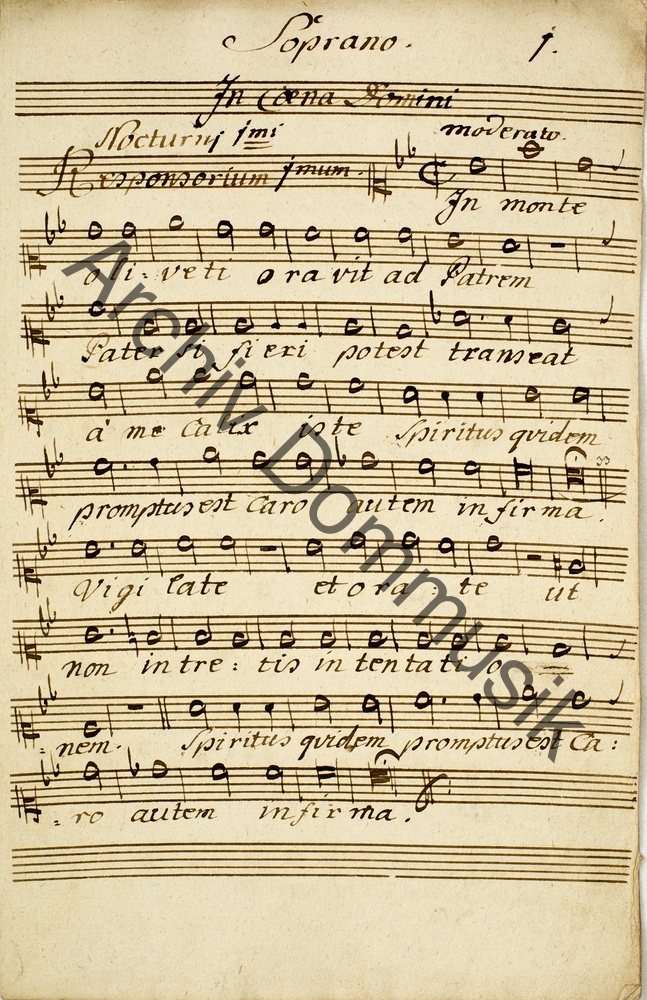 Soprano. 1.
In Cœna Domini
Nocturni 1mi moderato.
Responsorium 1mum.
In monte
oli: veti oravit ad Patrem
Pater si fieri potest transeat
à me Calix iste Spiritus qvidem
promptus est Caro autem infirma.
Vigilate et ora: te ut
non intre: tis in tentatio
= nem. Spiritus qvidem promptus est Ca:
= ro autem infirma.
Archiv Dommusik